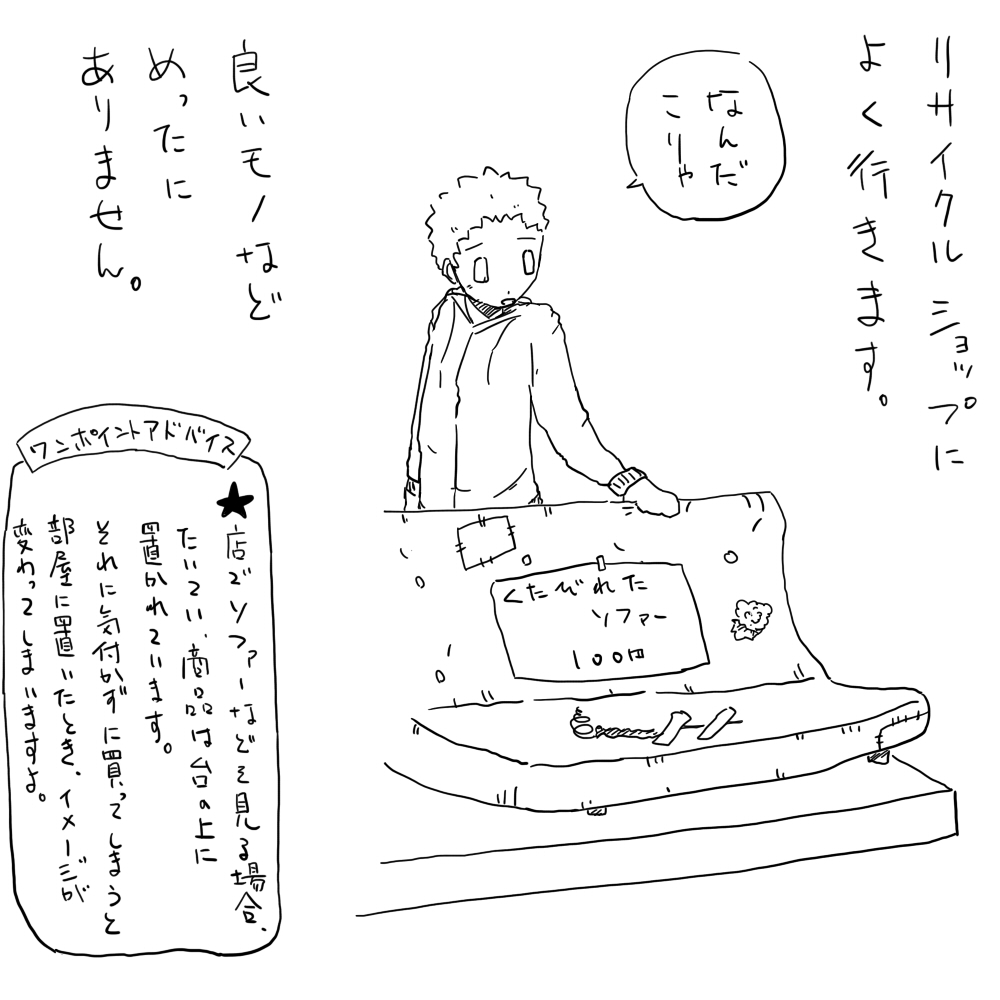 リサイクルショップに
よく行きます。
なんだ
こりゃ
良いモノなど
めったに
ありません。
くたびれた
ソファー
100円
ワンポイントアドバイス
★店でソファーなどを見る場合、
たいてい、商品は台の上に
置かれています。
それに気付かずに買ってしまうと
部屋に置いたとき、イメージが
変わってしまいますよ。